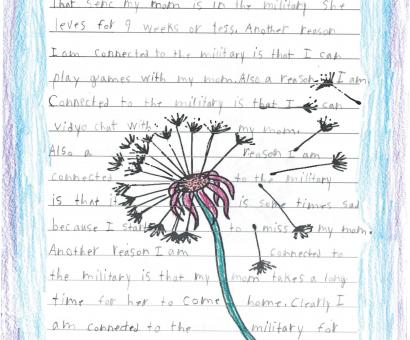 That senc my mom is in the military She
leves for 9 weeks or less. Another reason
I am connected to the military is that I can
play grames with my mom. Also a reason I am
Connected to the military is that I can
vidyo chat with my mom.
Also a reason I am
connected to the military
is that it is some times sad
because I start to miss my mom.
Another reason I am connected to
the military is that my mom takes a long
time for her to come home. Clearly I
am connected to the military for